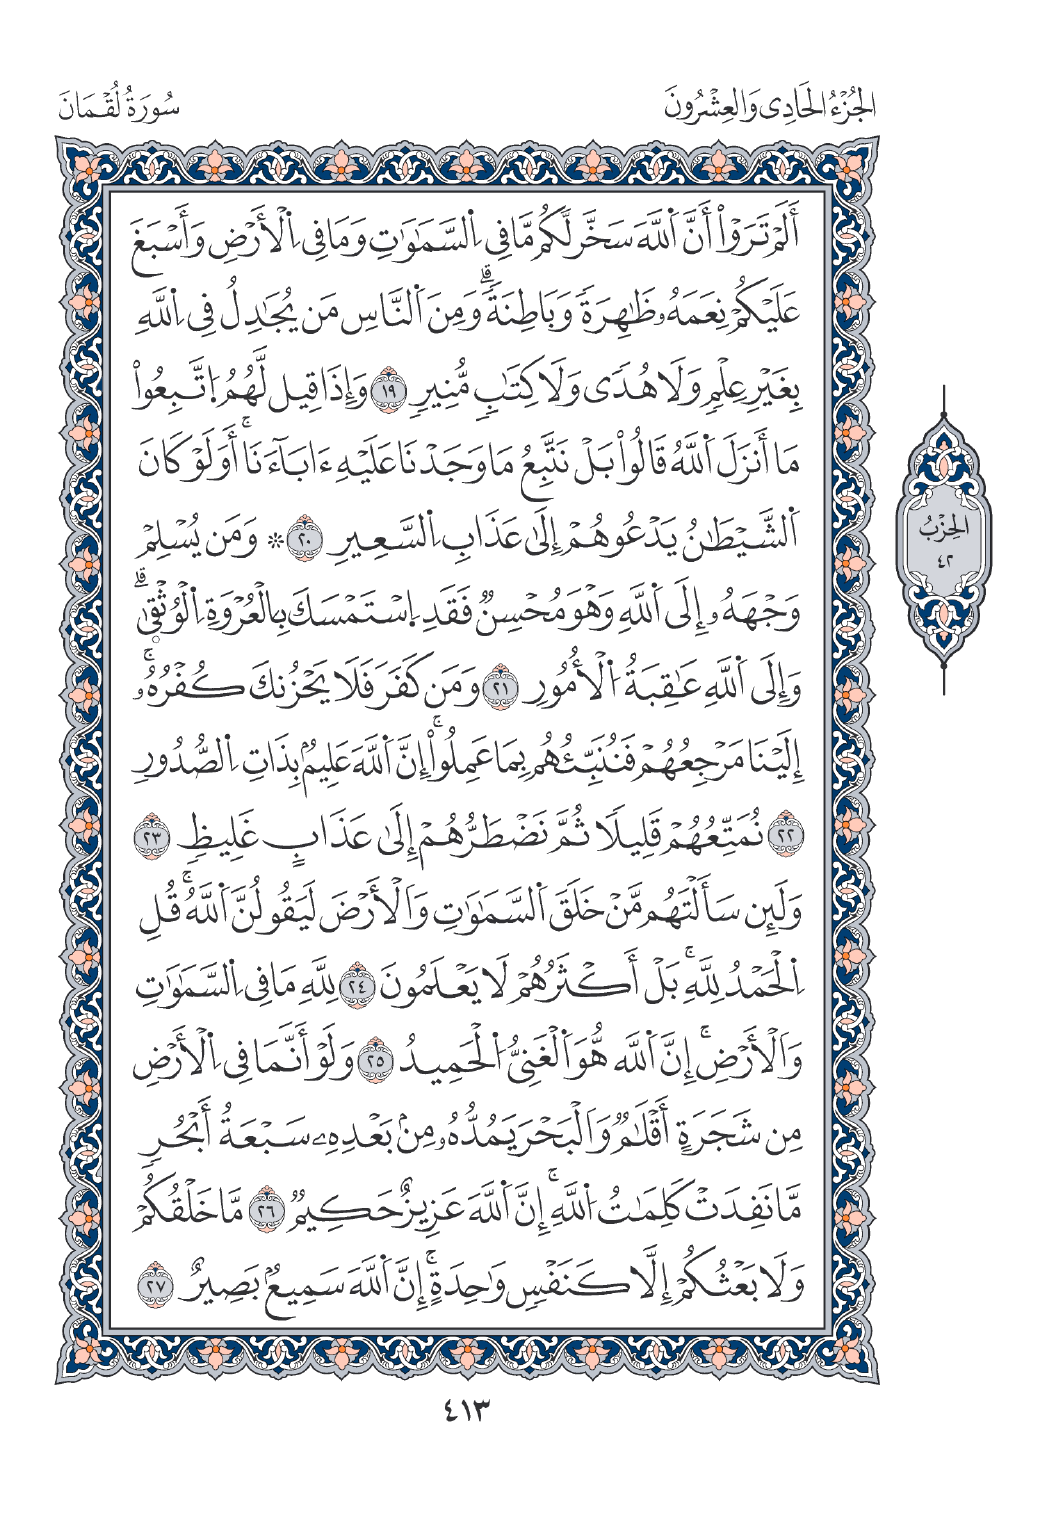 الجُزْءُ الحَادِى وَالعِشْرُونَ
سُورَةُ لُقْمَانَ
أَلَمْ تَرَوْا۟ أَنَّ اَ۬للَّهَ سَخَّرَ لَكُم مَّا فِى اِ۬لسَّمَٰوَٰتِ وَمَا فِى اِ۬لْأَرْضِ وَأَسْبَغَ
عَلَيْكُمْ نِعَمَهُۥ ظَٰهِرَةً وَبَاطِنَةًۗ وَمِنَ اَ۬لنَّاسِ مَن يُجَٰدِلُ فِى اِ۬للَّهِ
بِغَيْرِ عِلْمٍ وَلَا هُدًى وَلَا كِتَٰبٍ مُّنِيرٍ ١٩ وَإِذَا قِيلَ لَهُمُ اُ۪تَّبِعُوا۟
مَا أَنزَلَ اَ۬للَّهُ قَالُوا۟ بَلْ نَتَّبِعُ مَا وَجَدْنَا عَلَيْهِ ءَابَآءَنَاۚ أَوَلَوْ كَانَ
اَ۬لشَّيْطَٰنُ يَدْعُوهُمْ إِلَىٰ عَذَابِ اِ۬لسَّعِيرِ ٢٠ ۞ وَمَن يُسْلِمْ
وَجْهَهُۥ إِلَى اَ۬للَّهِ وَهْوَ مُحْسِنٌ فَقَدِ اِ۪سْتَمْسَكَ بِالْعُرْوَةِ اِ۬لْوُثْقٜىٰۗ
وَإِلَى اَ۬للَّهِ عَٰقِبَةُ اُ۬لْأُمُورِ ٢١ وَمَن كَفَرَ فَلَا يَحْزُنكَ كُفْرُهُۥۚ
إِلَيْنَا مَرْجِعُهُمْ فَنُنَبِّئُهُم بِمَا عَمِلُوا۟ۚ إِنَّ اَ۬للَّهَ عَلِيمٌۢ بِذَاتِ اِ۬لصُّدُورِ
٢٢ نُمَتِّعُهُمْ قَلِيلًا ثُمَّ نَضْطَرُّهُمْ إِلَىٰ عَذَابٍ غَلِيظٍ ٢٣
وَلَئِن سَأَلْتَهُم مَّنْ خَلَقَ اَ۬لسَّمَٰوَٰتِ وَالْأَرْضَ لَيَقُولُنَّ اَ۬للَّهُۚ قُلِ
اِ۬لْحَمْدُ لِلَّهِۚ بَلْ أَكْثَرُهُمْ لَا يَعْلَمُونَ ٢٤ لِلَّهِ مَا فِى اِ۬لسَّمَٰوَٰتِ
وَالْأَرْضِۚ إِنَّ اَ۬للَّه هُّوَ اَ۬لْغَنِىُّ اُ۬لْحَمِيدُ ٢٥ وَلَوْ أَنَّمَا فِى اِ۬لْأَرْضِ
مِن شَجَرَةٍ أَقْلَٰمٌ وَالْبَحْرَ يَمُدُّهُۥ مِنۢ بَعْدِهِۦ سَبْعَةُ أَبْحُرٍ
مَّا نَفِدَتْ كَلِمَٰتُ اُ۬للَّهِۚ إِنَّ اَ۬للَّهَ عَزِيزٌ حَكِيمٌ ٢٦ مَّا خَلْقُكُمْ
وَلَا بَعْثُكُمْ إِلَّا كَنَفْسٍ وَٰحِدَةٍۚ إِنَّ اَ۬للَّهَ سَمِيعٌۢ بَصِيرٌ ٢٧
الحِزْبُ
٤٢
٤١٣